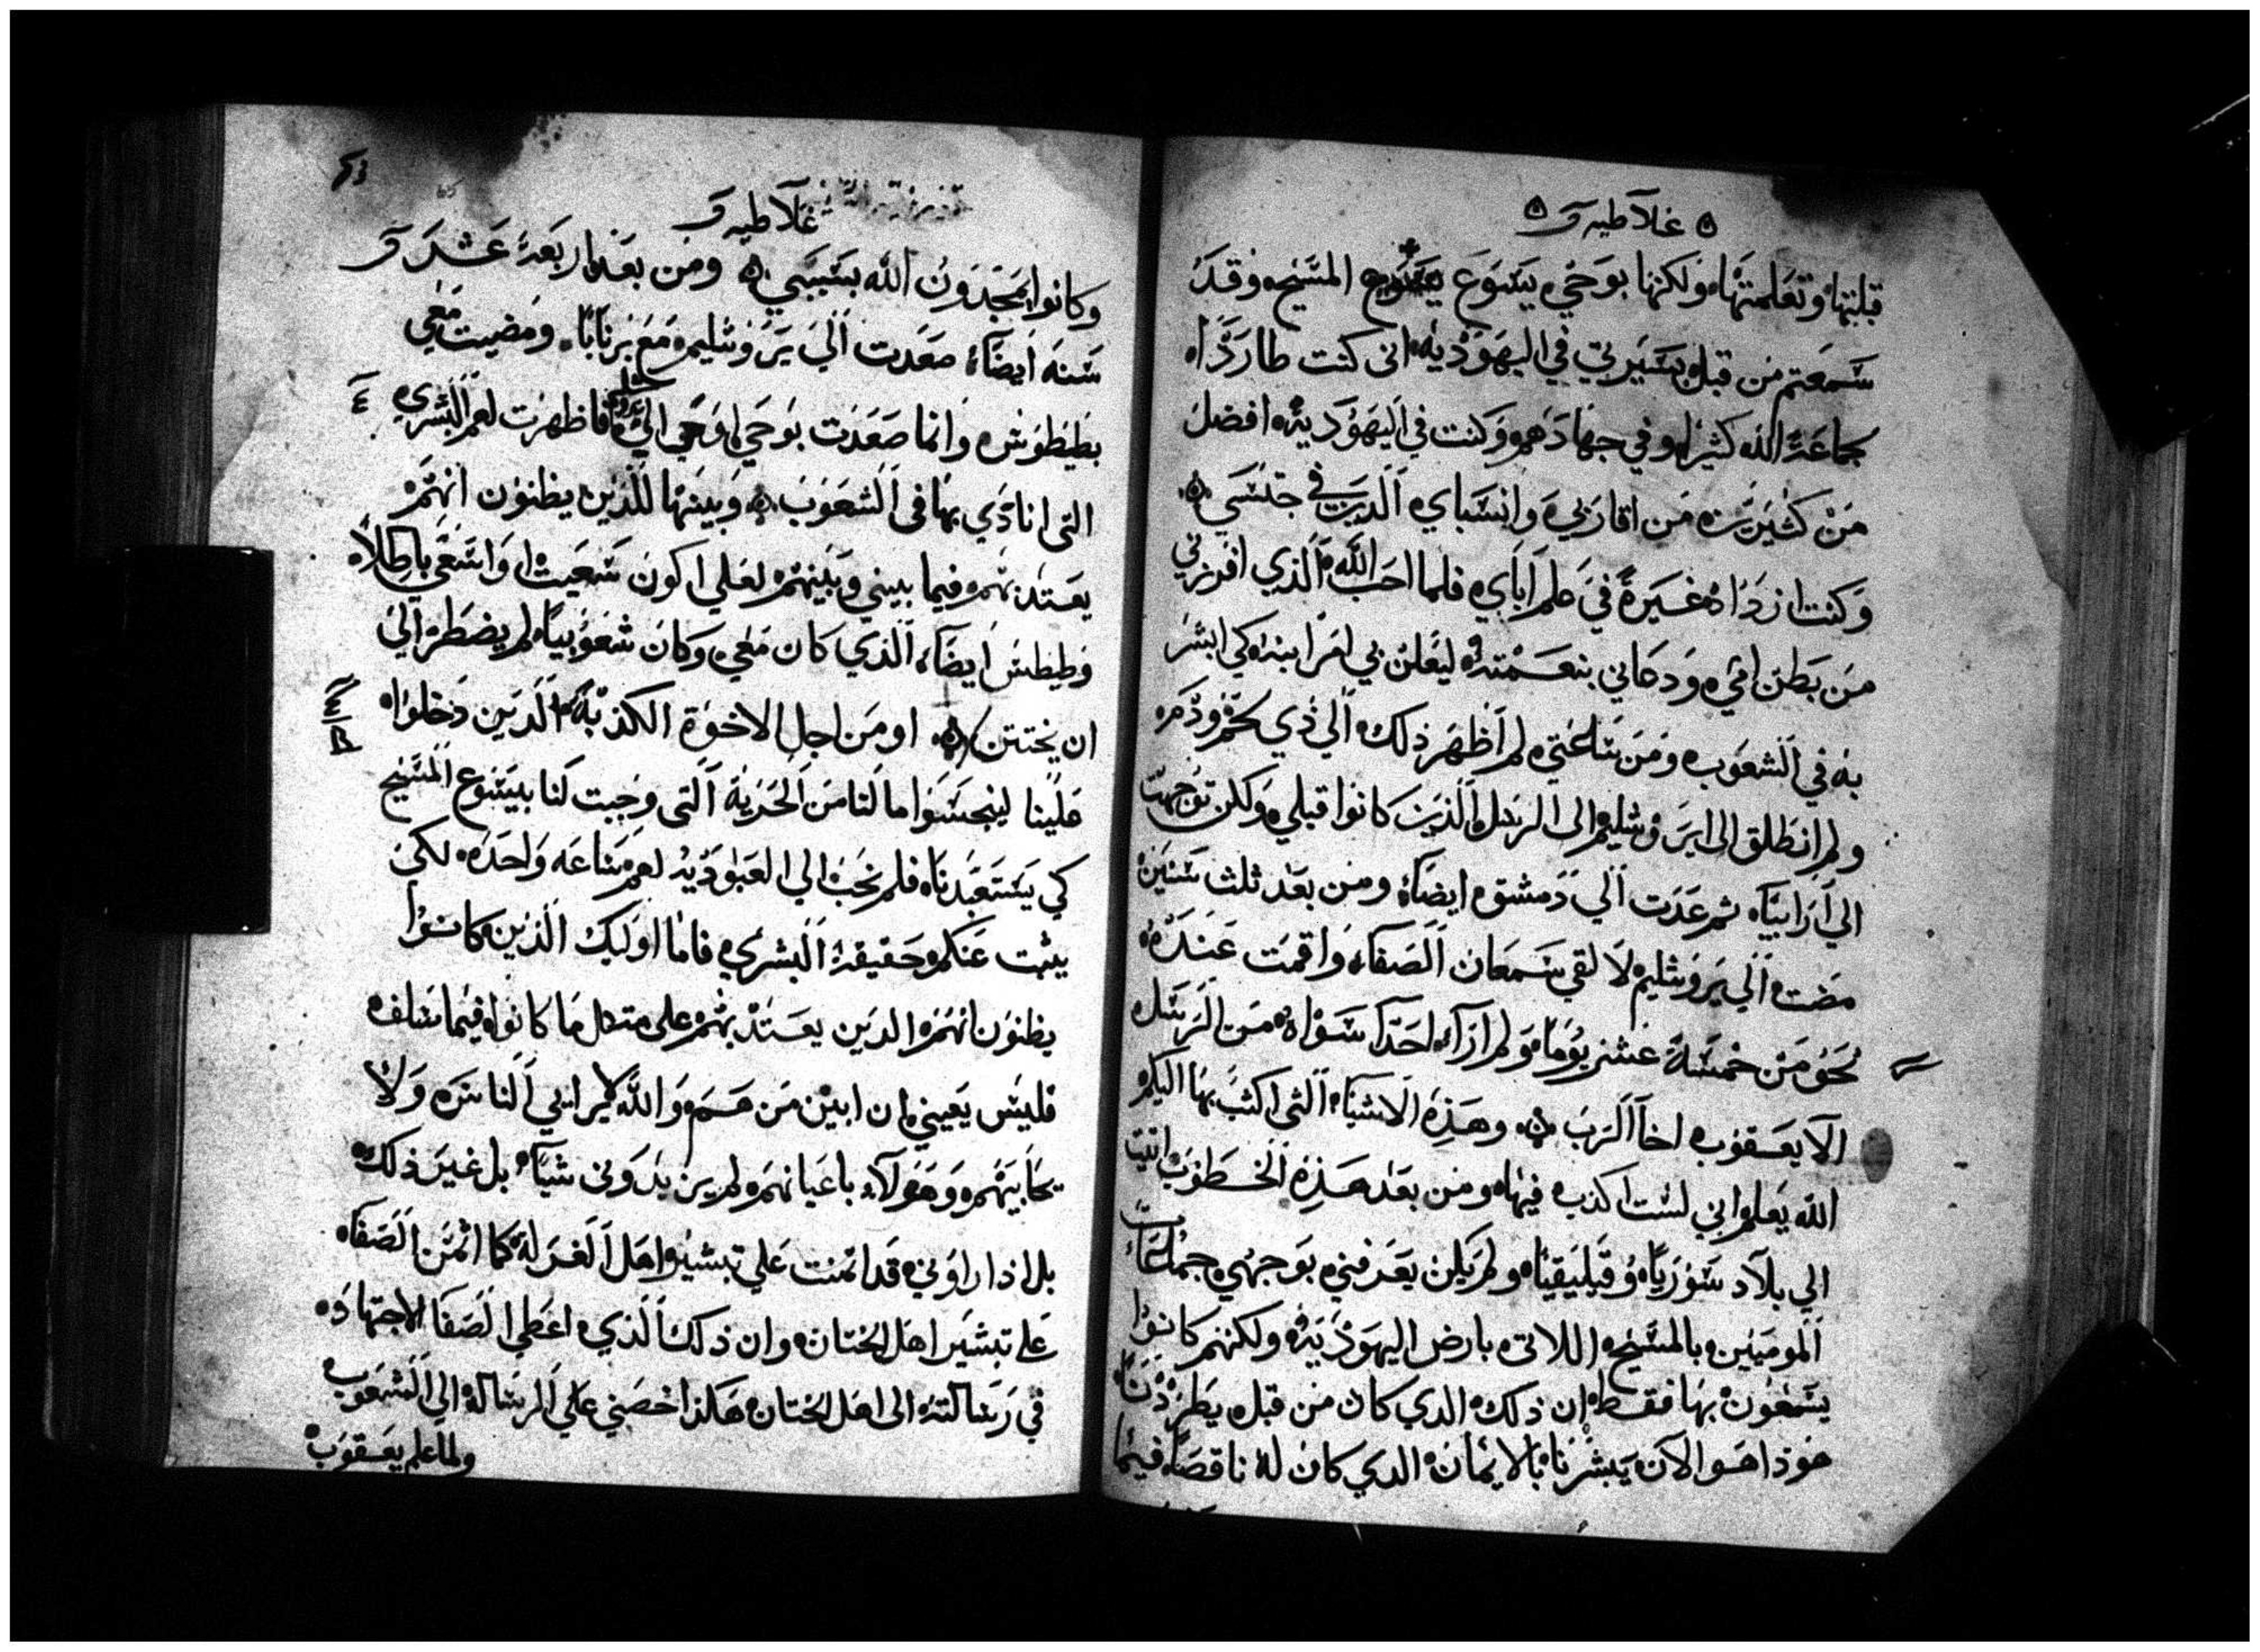 غلاطيه
قبلتها وتعلمتها ولكنها بوحي يسوع المسيح وقد
سمعتم من قبل بسيرتي في اليهوديه اني كنت طاردًا
جماعة الله كثيرا وفي جهادهم وكنت في اليهودية افضل
من كثيرين من اقاربي وانسباي الدين في جنسي
وكنت ازداد غيرة في علم اباي فلما احب الله الذي افرزني
من بطن امي ودعاني بنعمته ليعلن بي امر ابنه كي ابشر
به في الشعوب ومن ساعتي لم اظهر ذلك الي ذي لحم ودم
ولم انطلق الى ايروشليم الى الرسل الذين كانوا قبلي ولكن توجهت
الي ارابيا ثم عدت الي دمشق ايضا ومن بعد ثلث سنين
مضت الي يروشليم لالقي سمعان الصفا واقمت عنده
نحو من خمسة عشر يوما ولم ارا احدا سواه من الرسل
الا يعقوب اخا الرب وهذه الاشيا التي اكتب بها اليكم
الله يعلم اني لست اكذب فيها ومن بعد هذه الخطوب اتيت
الي بلاد سوريا وقيليقيا ولم يكن يعرفني بوجهي جماعات
المومنين بالمسيح اللاتي بارض اليهودية ولكنهم كانوا
يسمعون بها فقط ان ذلك الدي كان من قبل يطردنا
هوذا هو الان يبشرنا بالايمان الدي كان له ناقصا فيما
غلاطيه
وكانوا يمجدون الله بسببي ومن بعد اربعة عشر
سنه ايضا صعدت الي يروشليم مع برنابا ومضيت معي
بطيطوس وانما صعدت بوحي اوحي الي فاظهرت لهم البشري
التى انادي بها فى الشعوب وبينتها للذين يظنون انهم
يعتد بهم فيما بيني وبينهم لعلي اكون سعيت او اسعي باطلا
وطيطس ايضا الذي كان معي وكان شعوبيا لم يضطر الي
ان يختتن او من اجل الاخوة الكذبة الدين دخلوا
علينا ليتجسسوا ما لنا من الحرية التى وجبت لنا بيسوع المسيح
كي يستعبدنا فلم نحب الي العبودية لهم ساعه واحده لكي
يثبت عنكم حقيقة البشري فاما اوليك الذين كانوا
يظنون انهم الدين يعتد بهم على متكل ما كانوا فيما سلف
فليس يعيني ان ابين من هم والله لا يرايي الناس ولا
يحابيهم وهولاء باعيانهم لم يزيدوني شيا بل غير ذلك
بل اذا راوني قد ائمنت علي تبشير اهل الغرلة كما ائمن الصفا
على تبشير اهل الختان وان ذلك الذي اعطي الصفا الاجتهاد
في رسالته الى اهل الختان هكذا خصني علي الرسالة الي الشعوب
ولما علم يعقوب